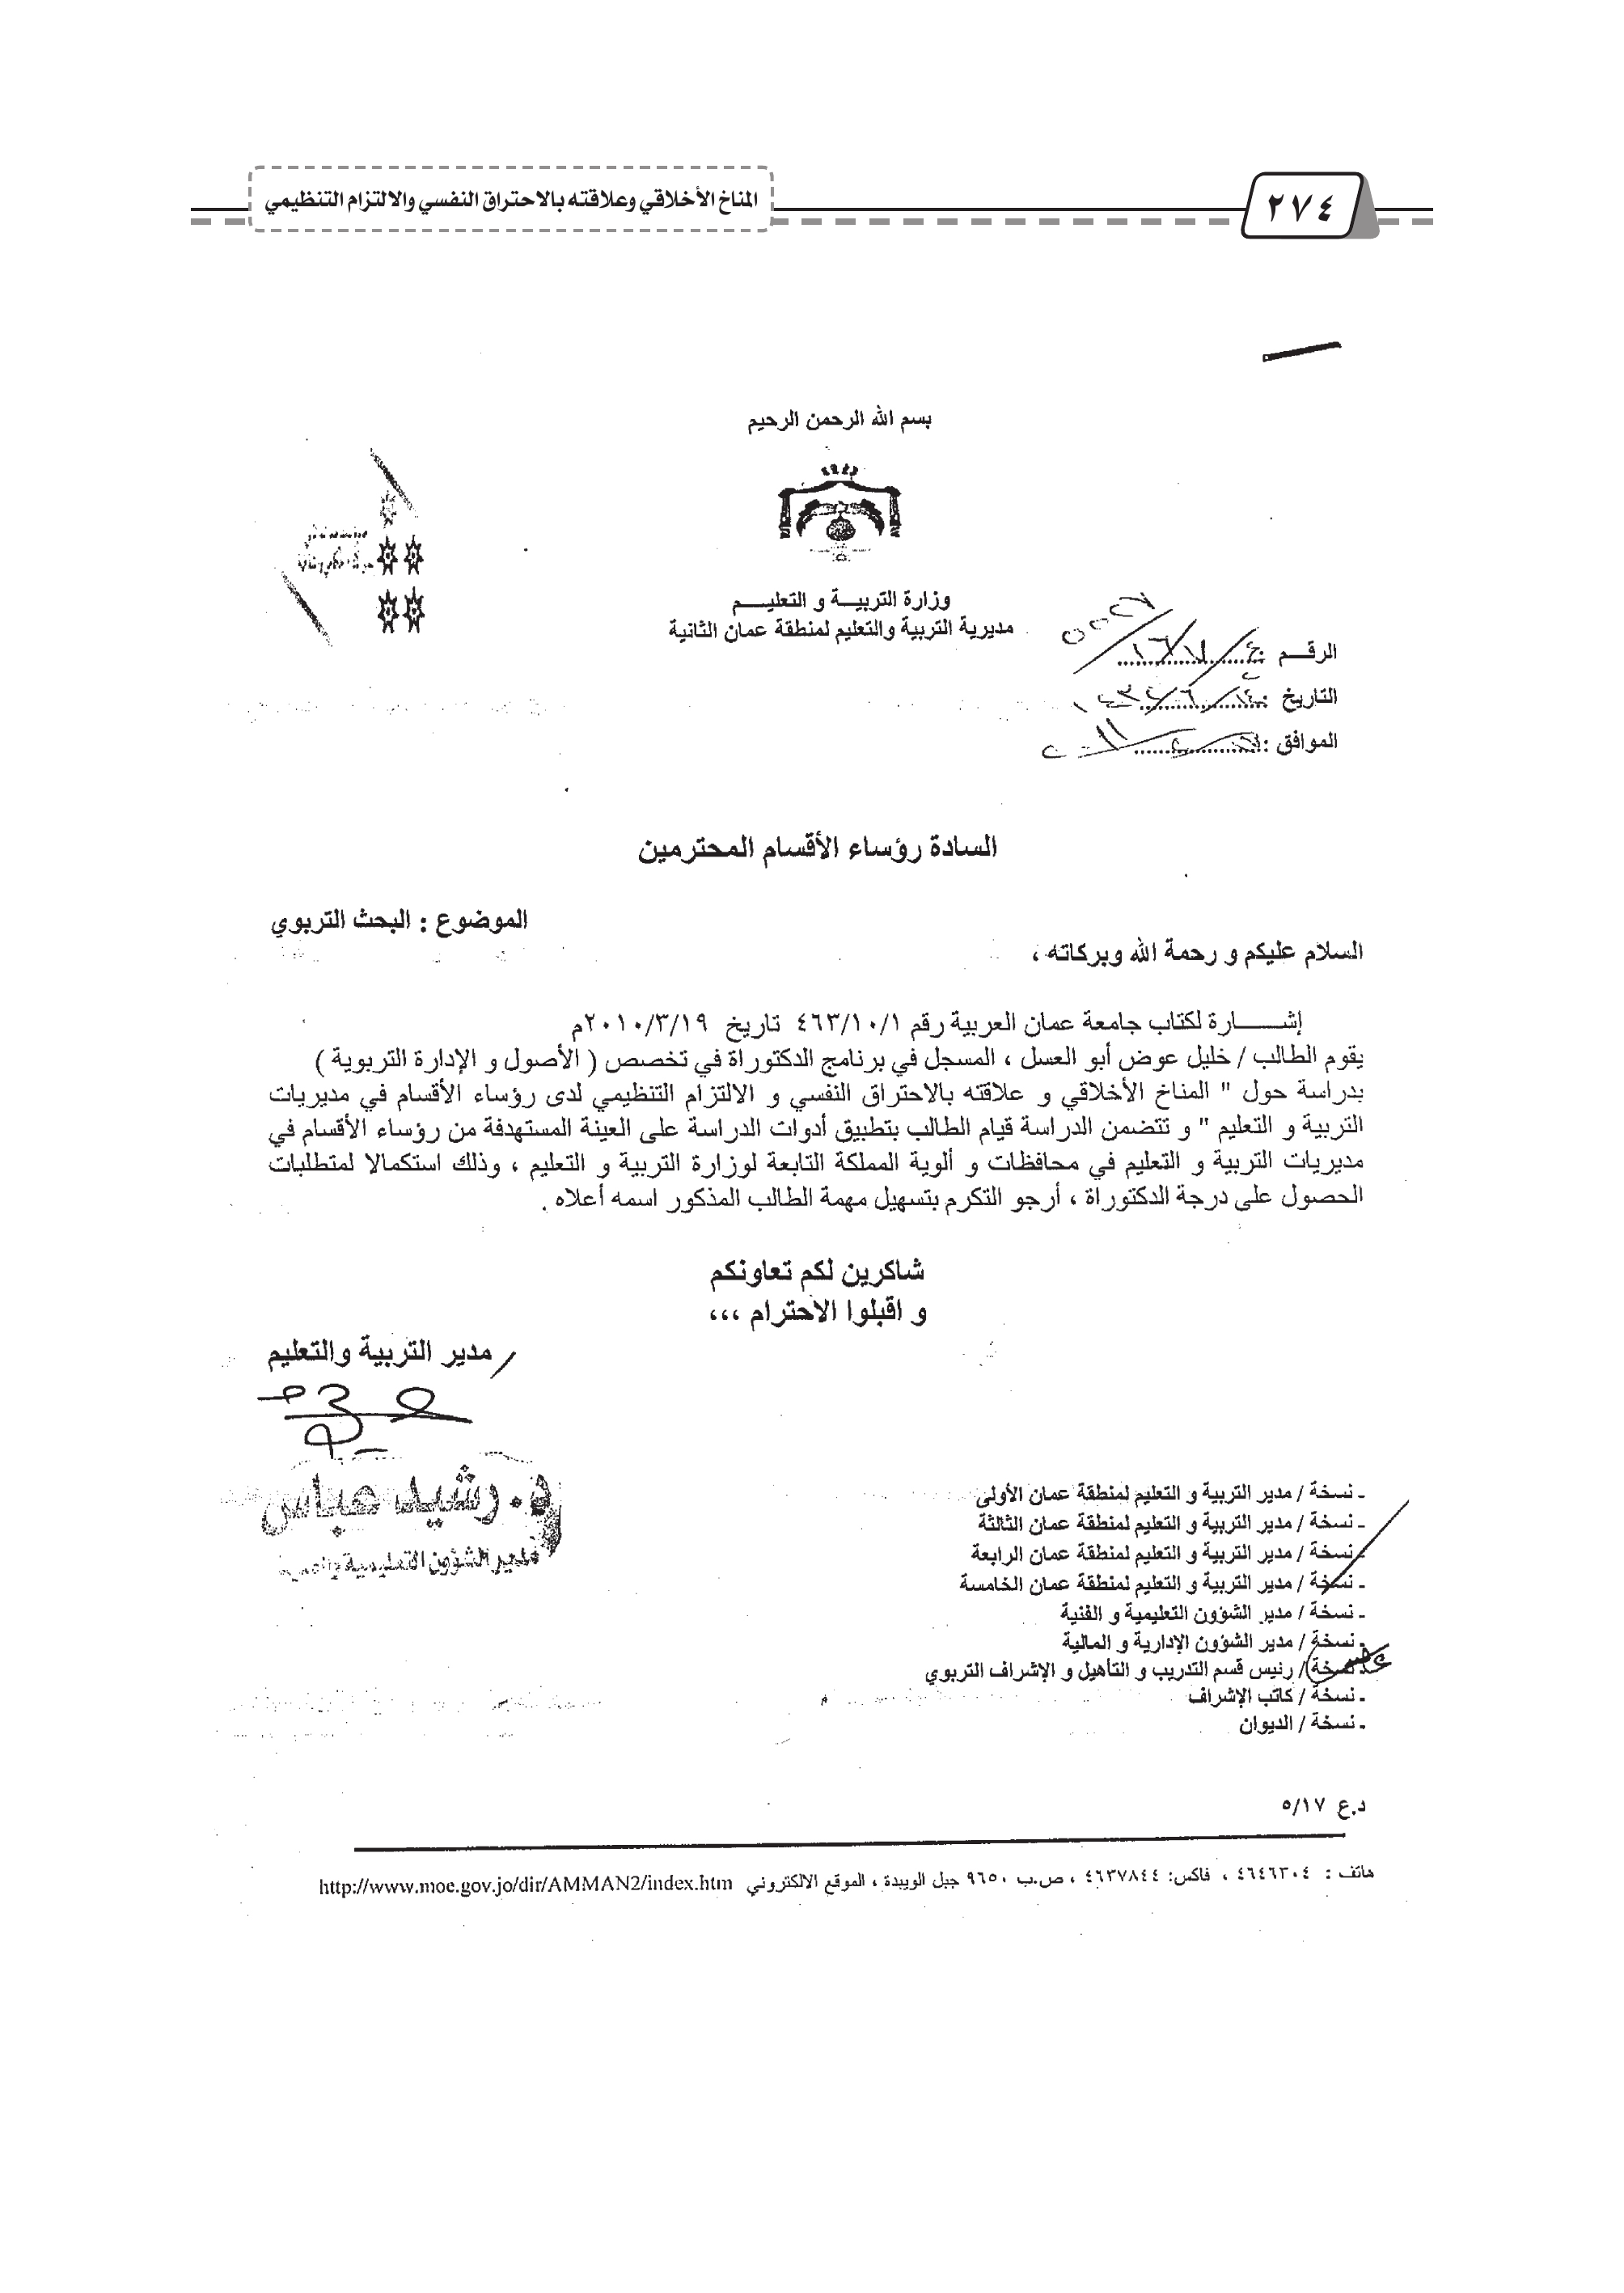 ٢٧٤
المناخ الأخلاقي وعلاقته بالاحتراق النفسي والالتزام التنظيمي
بسم الله الرحمن الرحيم
وزارة التربيـــة و التعليـــم
مديرية التربية والتعليم لمنطقة عمان الثانية
الرقـــم
التاريخ :
الموافق :
السادة رؤساء الأقسام المحترمين
الموضوع : البحث التربوي
السلام عليكم و رحمة الله وبركاته ،
إشـــــارة لكتاب جامعة عمان العربية رقم ٤٦٣/١٠/١ تاريخ ٢٠١٠/٣/١٩م
يقوم الطالب / خليل عوض أبو العسل ، المسجل في برنامج الدكتوراة في تخصص ( الأصول و الإدارة التربوية )
بدراسة حول " المناخ الأخلاقي و علاقته بالاحتراق النفسي و الالتزام التنظيمي لدى رؤساء الأقسام في مديريات
التربية و التعليم " و تتضمن الدراسة قيام الطالب بتطبيق أدوات الدراسة على العينة المستهدفة من رؤساء الأقسام في
مديريات التربية و التعليم في محافظات و ألوية المملكة التابعة لوزارة التربية و التعليم ، وذلك استكمالا لمتطلبات
الحصول على درجة الدكتوراة ، أرجو التكرم بتسهيل مهمة الطالب المذكور اسمه أعلاه .
شاكرين لكم تعاونكم
و اقبلوا الاحترام ،،،
/ مدير التربية والتعليم
د. رشيد عباس
مدير الشؤون التعليمية
ـ نسخة / مدير التربية و التعليم لمنطقة عمان الأولى
ـ نسخة / مدير التربية و التعليم لمنطقة عمان الثالثة
ـ نسخة / مدير التربية و التعليم لمنطقة عمان الرابعة
ـ نسخة / مدير التربية و التعليم لمنطقة عمان الخامسة
ـ نسخة / مدير الشؤون التعليمية و الفنية
ـ نسخة / مدير الشؤون الإدارية و المالية
ـ نسخة / رئيس قسم التدريب و التأهيل و الإشراف التربوي
ـ نسخة / كاتب الإشراف
ـ نسخة / الديوان
د.ع ٥/١٧
هاتف : ٤٦٤٦٣٠٤ ، فاكس: ٤٦٣٧٨٤٤ ، ص.ب ٩٦٥٠ جبل الويبدة ، الموقع الالكتروني http://www.moe.gov.jo/dir/AMMAN2/index.htm